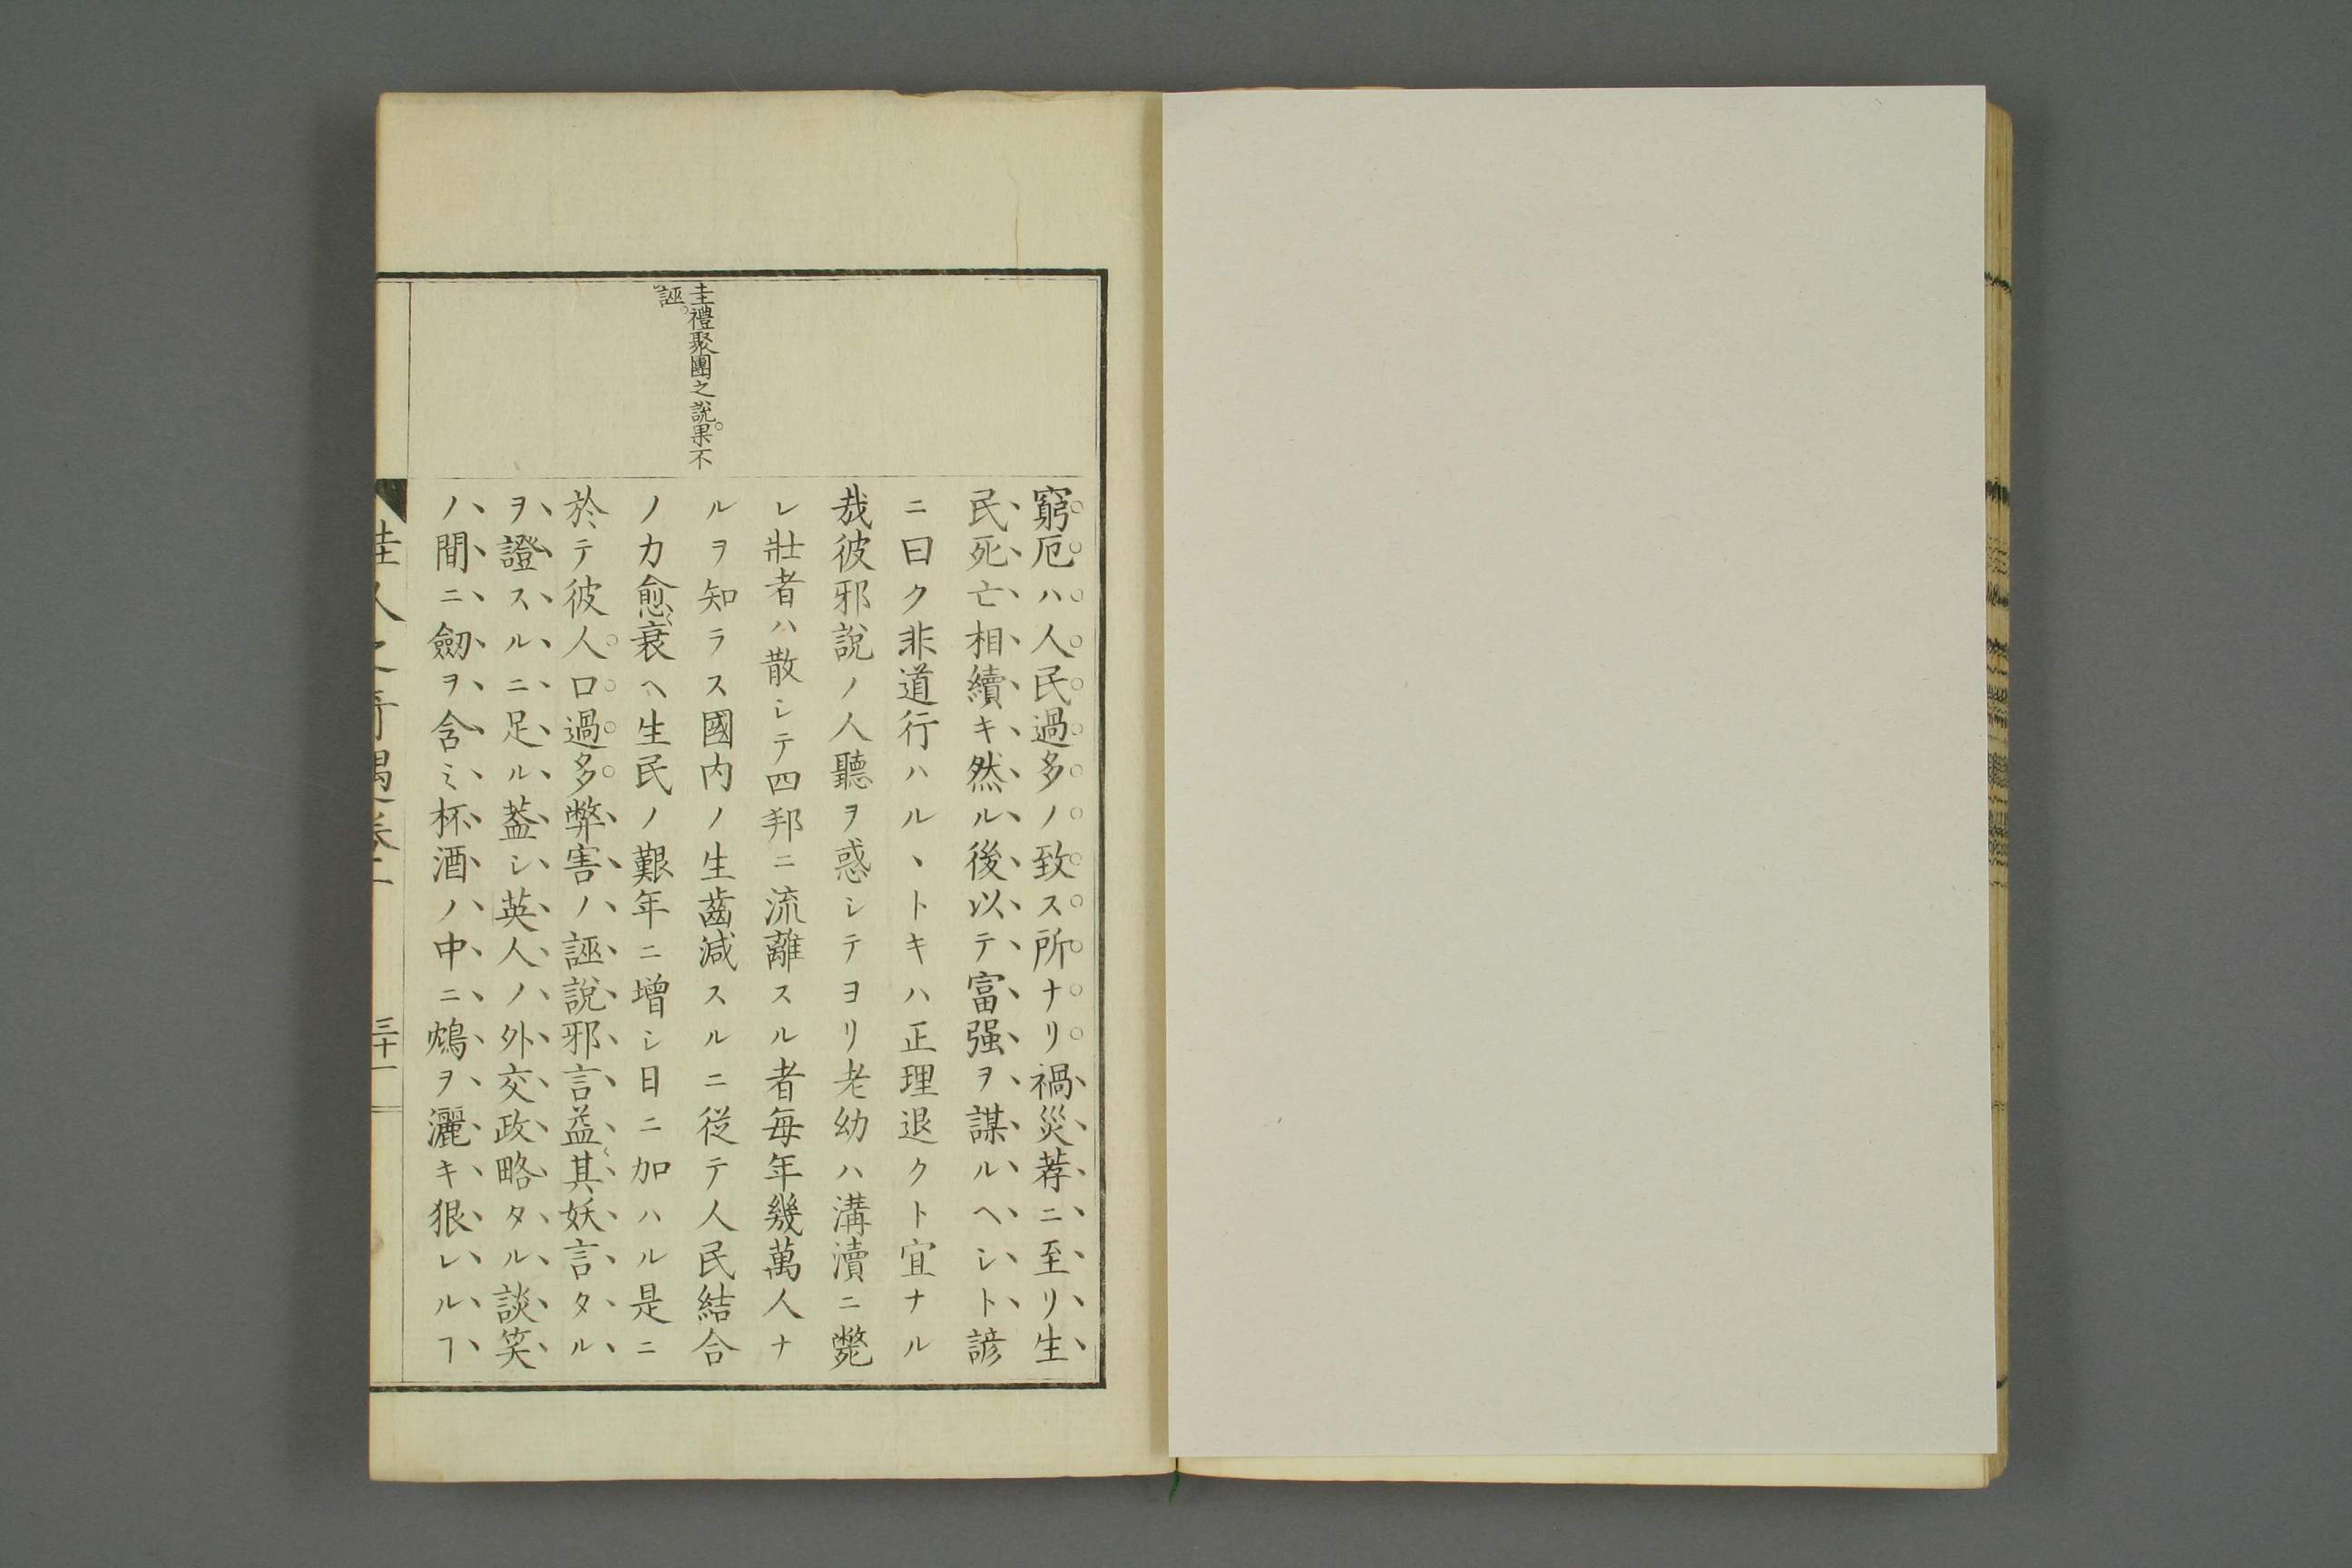 圭禮聚團之說果不
誣
窮厄ハ人民過多ノ致ス所ナリ禍災荐ニ至リ生
民死亡相續キ然ル後以テ富强ヲ謀ルヘシト諺
ニ曰ク非道行ハルヽトキハ正理退クト宜ナル
哉彼邪說ノ人聽ヲ惑シテヨリ老幼ハ溝瀆ニ斃
レ壯者ハ散シテ四邦ニ流離スル者每年幾萬人ナ
ルヲ知ラス國内ノ生齒減スルニ從テ人民結合
ノ力愈衰ヘ生民ノ艱年ニ增シ日ニ加ハル是ニ
於テ彼人口過多弊害ノ誣說邪言益其妖言タル
ヲ證スルニ足ル蓋シ英人ノ外交政略タル談笑
ノ間ニ劒ヲ含ミ杯酒ノ中ニ鴆ヲ灑キ狠レルヿ
佳人之奇遇卷二
三十一